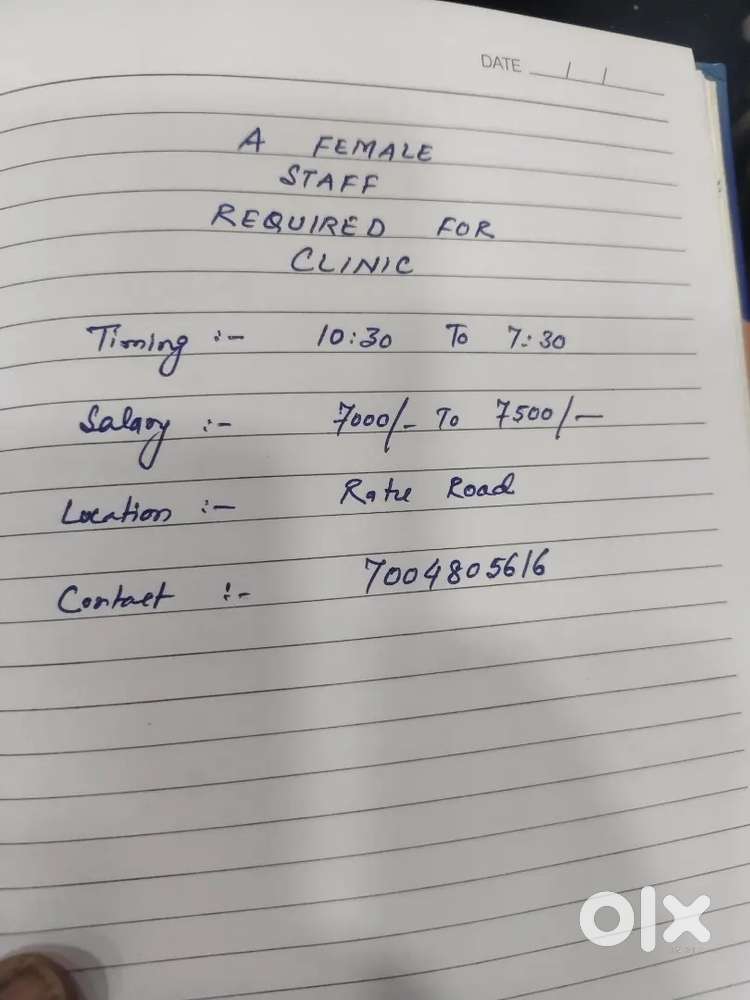 DATE / /
A FEMALE
STAFF
REQUIRED FOR
CLINIC
Timing :- 10:30 To 7:30
Salary :- 7000/- To 7500/-
Location :- Ratu Road
Contact :- 7004805616
olx